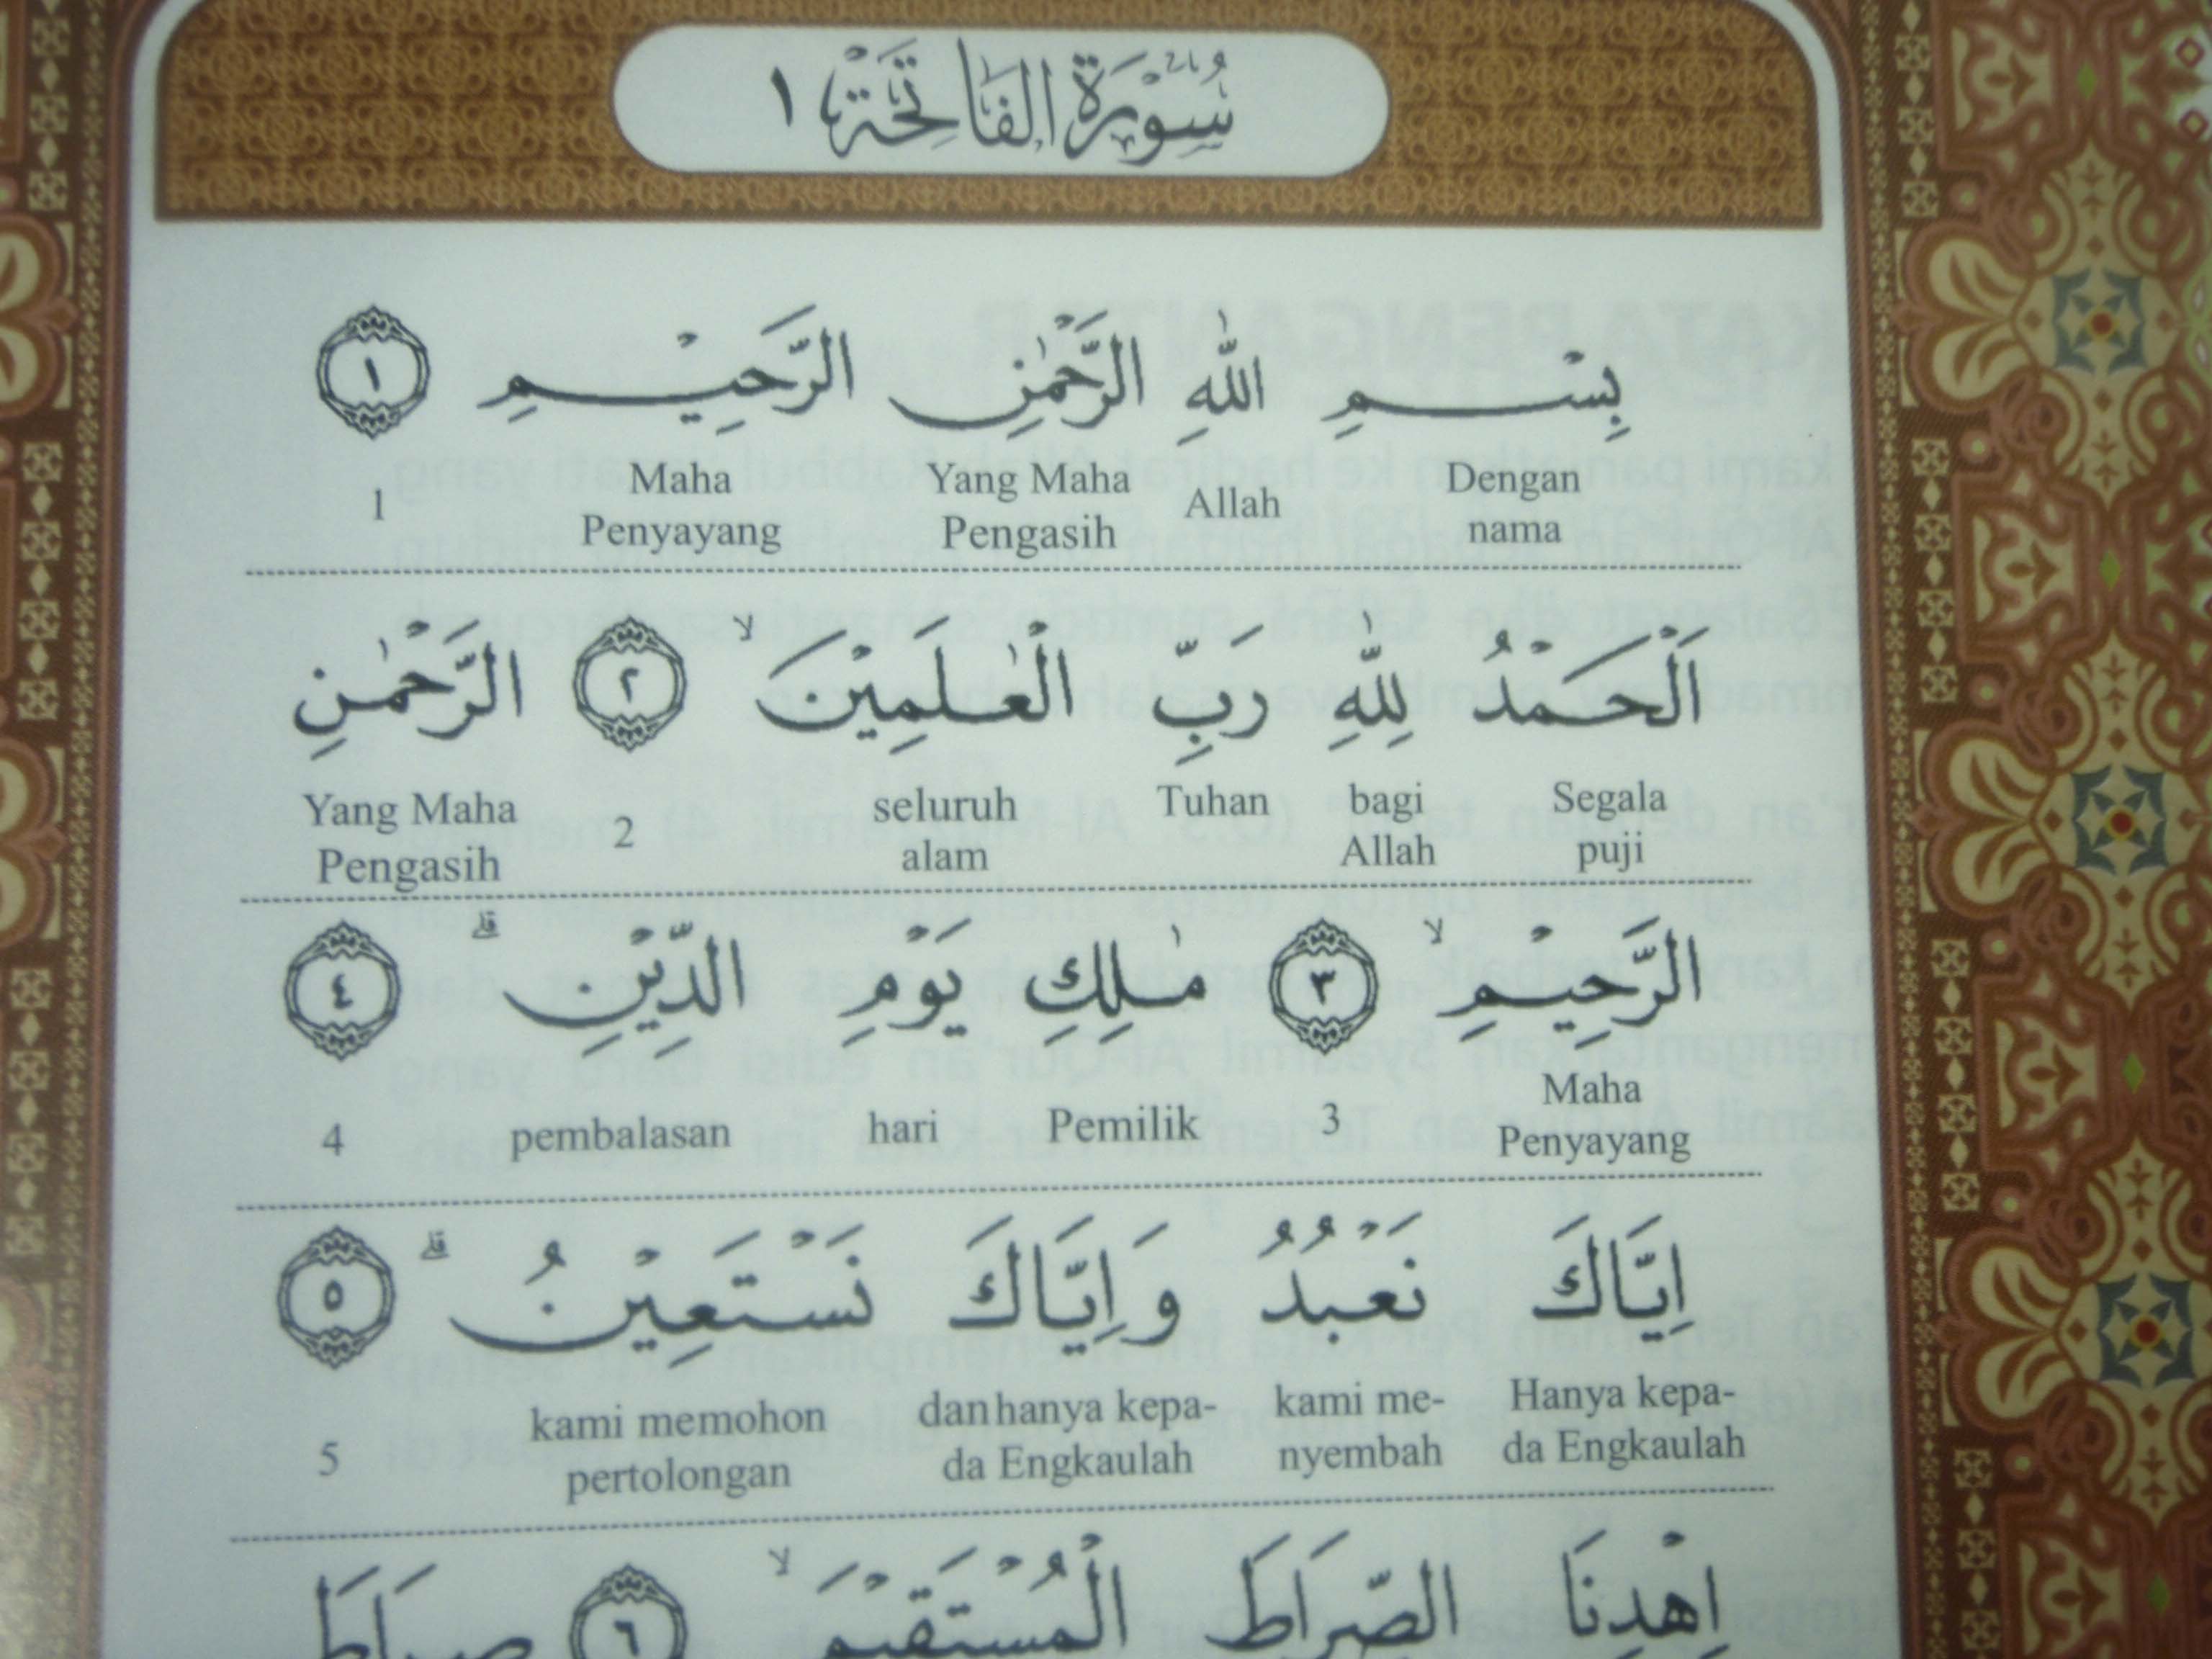 سُوْرَةُ الْفَاتِحَةِ ١
بِسْمِ اللّٰهِ الرَّحْمٰنِ الرَّحِيْمِ ١
Dengan nama Allah Yang Maha Pengasih Maha Penyayang 1
اَلْحَمْدُ لِلّٰهِ رَبِّ الْعٰلَمِيْنَۙ ٢ الرَّحْمٰنِ
Segala puji bagi Allah Tuhan seluruh alam 2 Yang Maha Pengasih
الرَّحِيْمِۙ ٣ مٰلِكِ يَوْمِ الدِّيْنِۗ ٤
Maha Penyayang 3 Pemilik hari pembalasan 4
اِيَّاكَ نَعْبُدُ وَاِيَّاكَ نَسْتَعِيْنُۗ ٥
Hanya kepa-da Engkaulah kami me-nyembah dan hanya kepa-da Engkaulah kami memohon pertolongan 5
اِهْدِنَا الصِّرَاطَ الْمُسْتَقِيْمَۙ ٦ صِرَاطَ